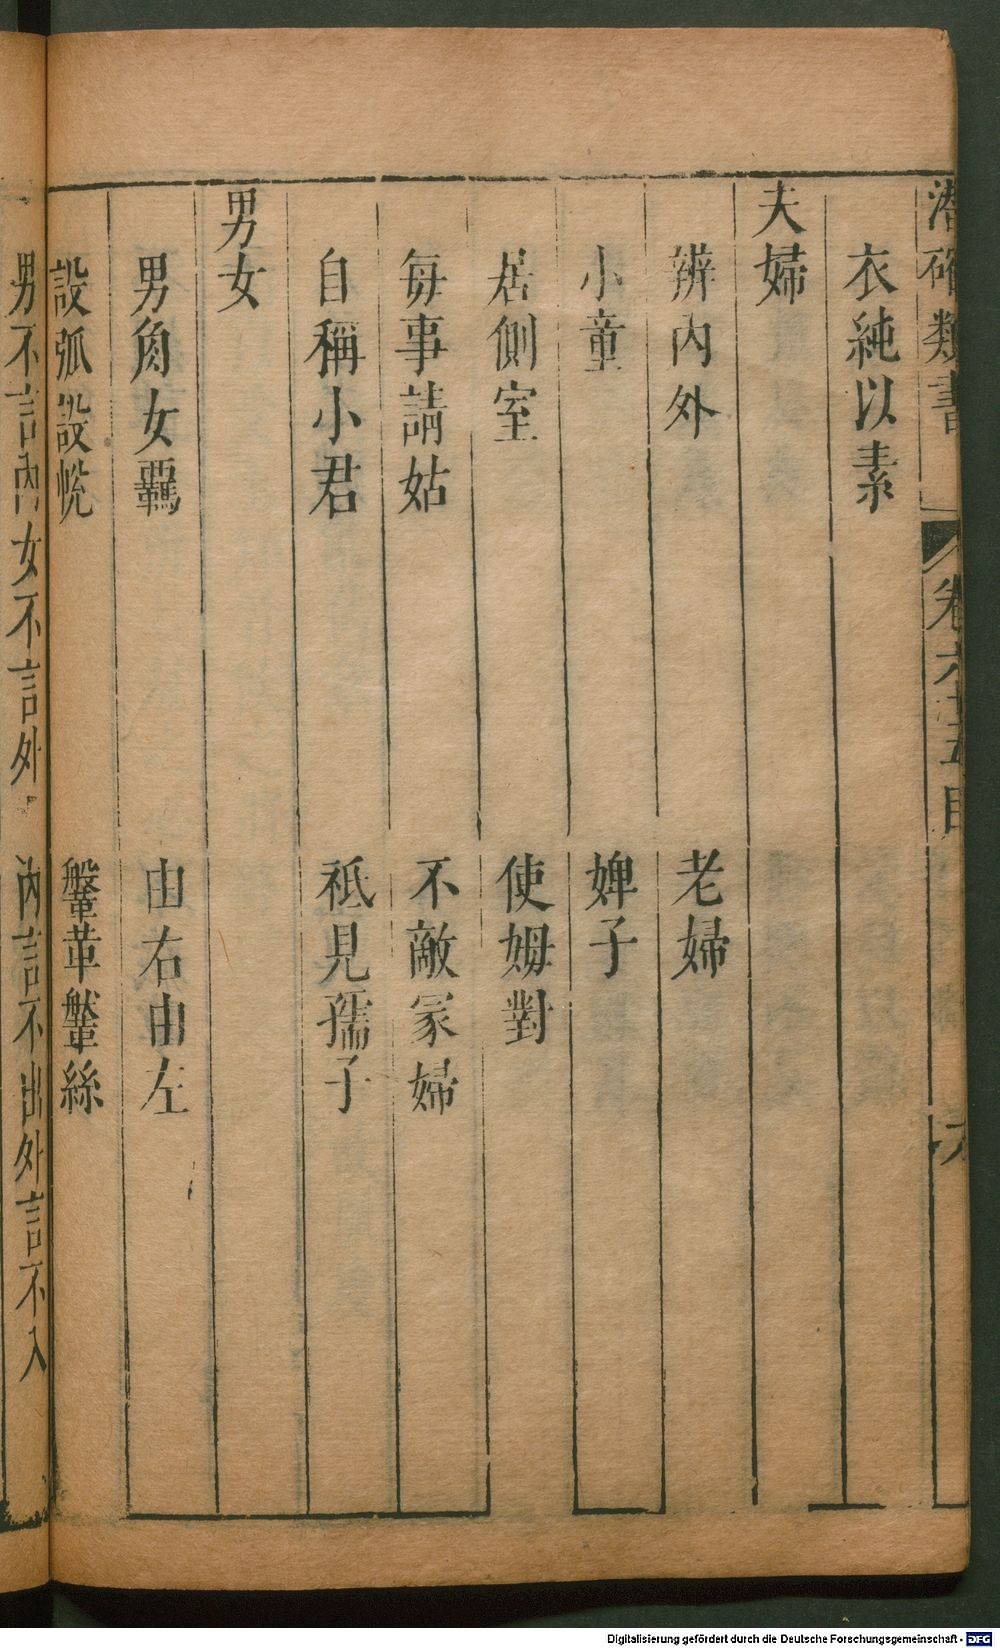 潛確類書 卷六十五目 六
衣純以素
夫婦
辨內外 老婦
小童 婢子
居側室 使姆對
每事請姑 不敵冢婦
自稱小君 祗見孺子
男女
男角女羈 由右由左
設弧設帨 鞶革鞶絲
男不言內女不言外 內言不出外言不入
Digitalisierung gefördert durch die Deutsche Forschungsgemeinschaft - DFG